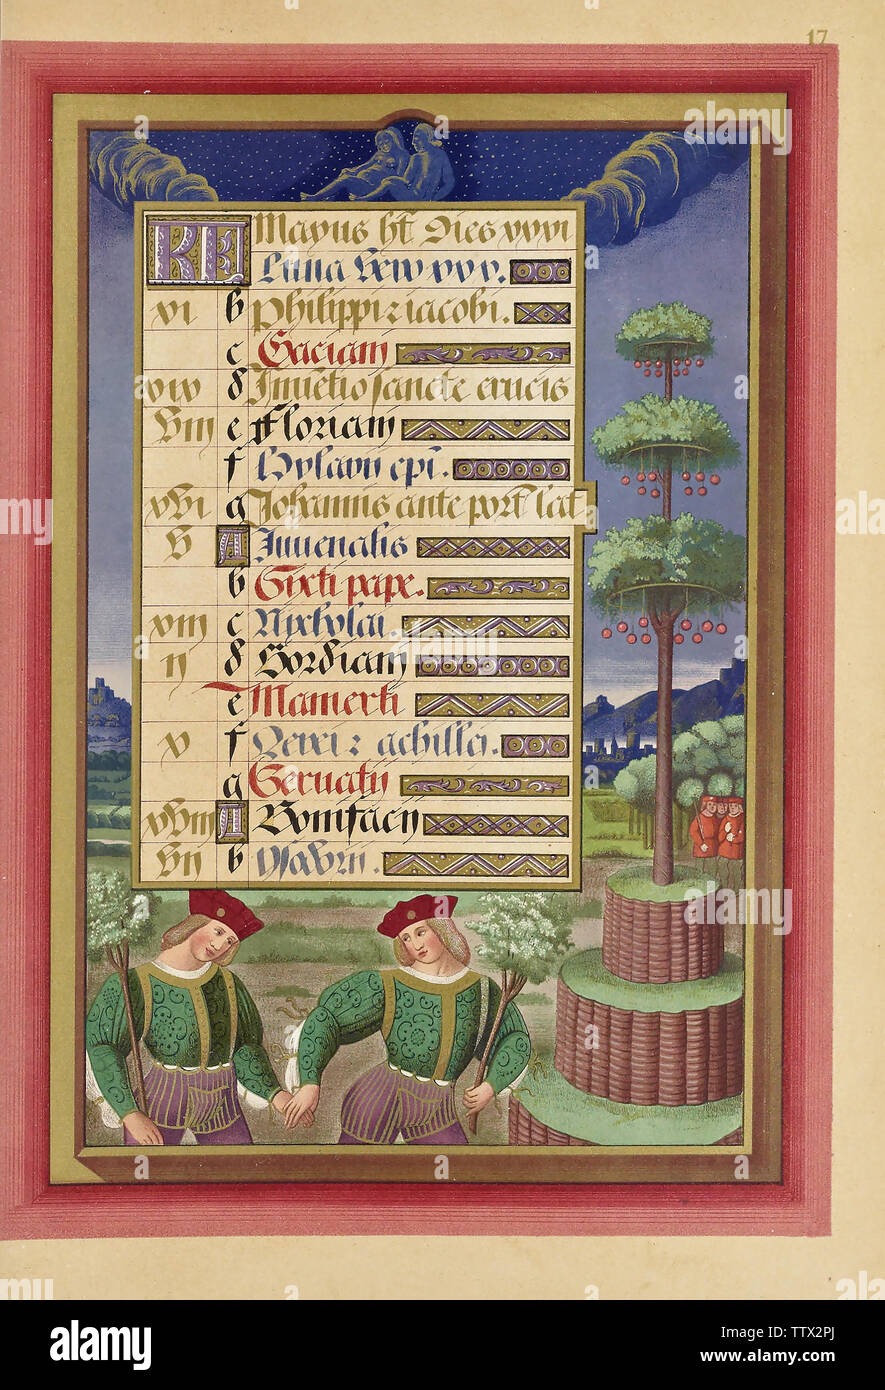 17
KL Mayus ht Dies xxxi
Luna vero xxx.
xi b Philippi z iacobi.
c Gaciani
xix d Inuetio sancte crucis
viii e Floriani
f Hylarii epi.
xvi g Johannis ante port lat
v A Iuuenalis
b Sixti pape.
xiii c Nycholai.
ii d Gordiani
e Mamerti
x f Nerei z achillei.
g Seruatii
xviii A Bonifacii
vii b Ysidori
alamy
Image ID: TTX2PJ
www.alamy.com